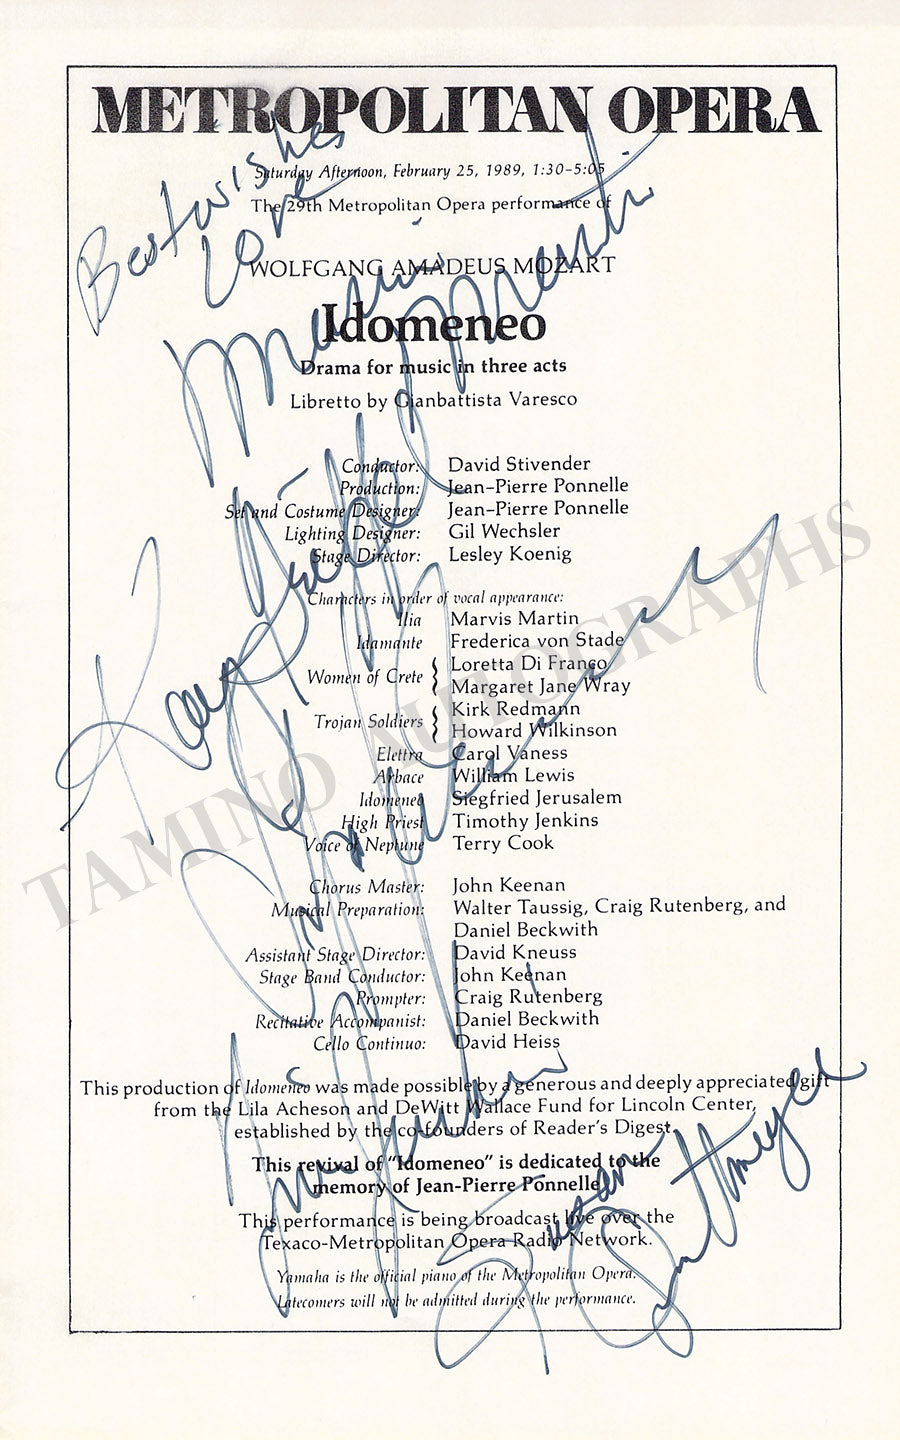 METROPOLITAN OPERA
Saturday Afternoon, February 25, 1989, 1:30-5:05
The 29th Metropolitan Opera performance of
WOLFGANG AMADEUS MOZART
Idomeneo
Drama for music in three acts
Libretto by Gianbattista Varesco
Conductor: David Stivender
Production: Jean-Pierre Ponnelle
Set and Costume Designer: Jean-Pierre Ponnelle
Lighting Designer: Gil Wechsler
Stage Director: Lesley Koenig
Characters in order of vocal appearance:
Ilia Marvis Martin
Idamante Frederica von Stade
Women of Crete { Loretta Di Franco
Margaret Jane Wray
Trojan Soldiers { Kirk Redmann
Howard Wilkinson
Elettra Carol Vaness
Arbace William Lewis
Idomeneo Siegfried Jerusalem
High Priest Timothy Jenkins
Voice of Neptune Terry Cook
Chorus Master: John Keenan
Musical Preparation: Walter Taussig, Craig Rutenberg, and
Daniel Beckwith
Assistant Stage Director: David Kneuss
Stage Band Conductor: John Keenan
Prompter: Craig Rutenberg
Recitative Accompanist: Daniel Beckwith
Cello Continuo: David Heiss
This production of Idomeneo was made possible by a generous and deeply appreciated gift
from the Lila Acheson and DeWitt Wallace Fund for Lincoln Center,
established by the co-founders of Reader's Digest.
This revival of "Idomeneo" is dedicated to the
memory of Jean-Pierre Ponnelle.
This performance is being broadcast live over the
Texaco-Metropolitan Opera Radio Network.
Yamaha is the official piano of the Metropolitan Opera.
Latecomers will not be admitted during the performance.
Best wishes
Love
Marvis Martin
Susan Quittmeyer
TAMINO AUTOGRAPHS